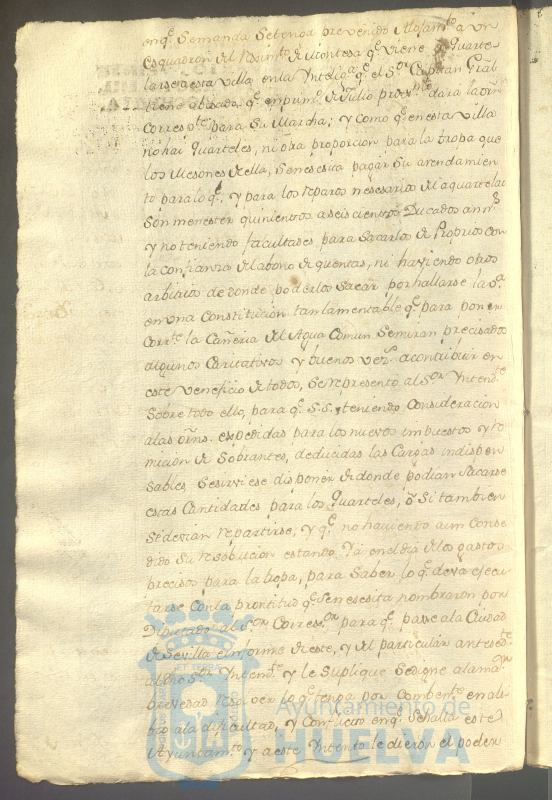 en q.e se manda se tenga prevenido Alojam.to a un
Esquadron del Rexim.to de Montesa q.e viene a Quarte-
larse a esta Villa en la Ynteligª q.e el S.or Capitan Gral
tiene abisado, q.e en prim.o de Julio prox.mo dara la orn̄
Corresp.te para Su Marcha; y como q.e en esta Villa
no hai Quarteles, ni otra proporcion para la tropa que
los Mesones de ella, Se nesesita pagar Su arrendamien-
to para lo q.l, y para los reparos nesesarios del aquartelar
Son menester quinientos a seis cientos Ducados an.s
y no teniendo facultades para Sacarlos de Propios con
la confianza del abono de quentas, ni haviendo otros
arbitrios de donde poderlos Sacar por hallarse la V.ª
en una Constitucion tan lamentable q.e para poner
Corr.te la Cañeria del Agua Comun Se miran precisados
algunos Caritativos y buenos vez.s a contribuir en
este veneficio de todos, Se represento al S.or Yntend.te
Sobre todo ello, para q.e S.S. teniendo Consideracion
a las orn̄s. expedidas para los nuevos impuestos y to-
micion de Sobrantes, deducidas las Cargas indispen
sables Se sirviese disponer de donde podian Sacarse
estas Cantidades para los Quarteles, o Si tambien
se devian repartirse, y q.e no haviendo aun Conse
dido Su resolucion estando ya en el dia de los gastos
precisos para la tropa, para Saber lo q.e deva ejecu
tarse con la prontitud q.e Se nesesita nombraron por
Diputado al S.or Correg.or para q.e pase a la Ciudad
de Sevilla e informe de este, y del particular antesed.te
al dho S.or Yntend.te y le Suplique Se digne a la ma.or
brevedad resolver lo q.e tenga por Combente en ali-
bio a la dificultad, y Conflicto en q.e Se halla este
Ayuntam.to y a este Yntento le dieron el poder
Ayuntamiento de
HUELVA